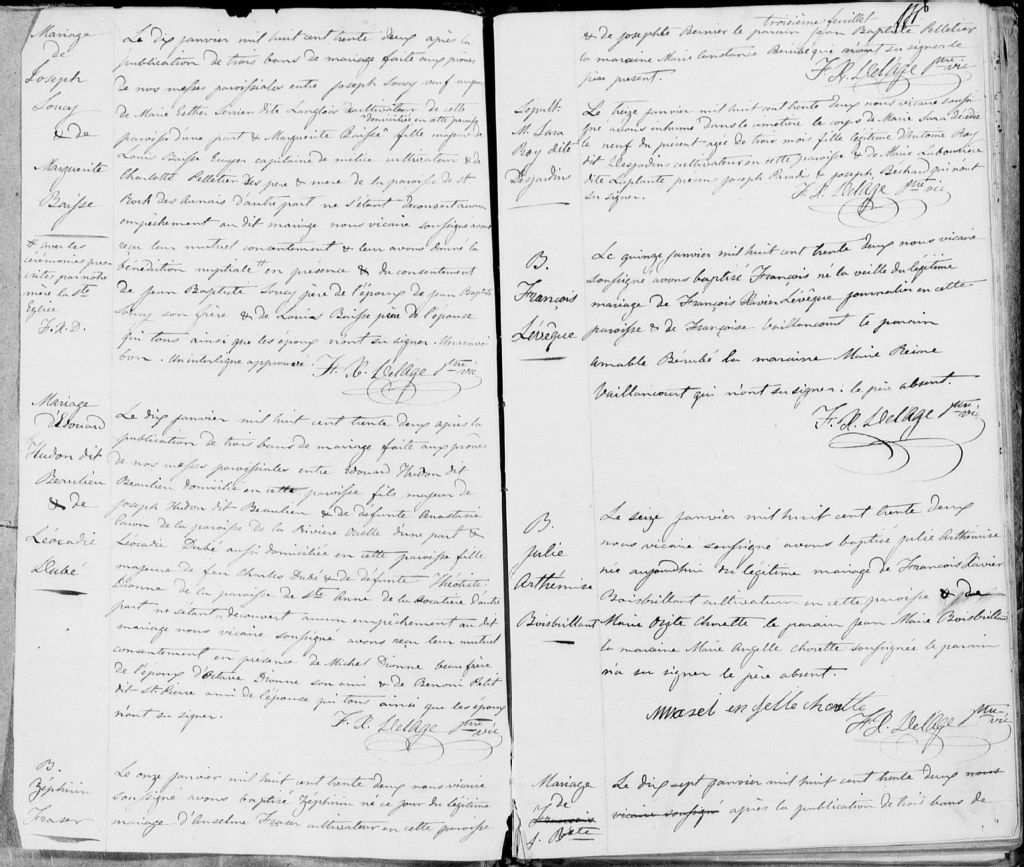 Mariage
de
Joseph
Soucy
& de
Marguerite
Baisse
avec les
cérémonies pres
crites par notre
mère la Ste
Eglise
F.X.D.
Le dix janvier mil huit cent trente deux après la
publication de trois bans de mariage faite aux prones
de nos messes paroissiales entre Joseph Soucy veuf majeur
de Marie Esther dite Langlois cultivateur de cette
domiciliée en cette paroisse
paroisse d'une part & Marguerite Baisse fille majeure de
Louis Baisse Ecuyer capitaine de milice cultivateur & de
Charlotte Pelletier ses père & mère de la paroisse de St
Roch des Aunais d'autre part ne s'étant découvert aucun
empêchement au dit mariage nous vicaire soussigné avons
reçu leur mutuel consentement & leur avons donné la
bénédiction nuptiale en présence & du consentement
de Jean Baptiste Soucy père de l'époux de Jean Baptiste
Soucy son frère & de Louis Baisse père de l'épouse
qui tous ainsi que les époux n'ont su signer. Un renvoi
bon. Un interligne approuvé. F. X. Delâge Ptre vic
Mariage
d'Edouard
Hudon dit
Beaulieu
& de
Léocadie
Dubé
Le dix janvier mil huit cent trente deux après la
publication de trois bans de mariage faite aux prones
de nos messes paroissiales entre Edouard Hudon dit
Beaulieu domicilié en cette paroisse fils majeur de
Joseph Hudon dit Beaulieu & de défunte Anastasie
Caron de la paroisse de la Rivière Ouelle d'une part &
Léocadie Dubé aussi domiciliée en cette paroisse fille
majeure de feu Charles Dubé & de défunte Théotiste
Dionne de la paroisse de Ste Anne de la Pocatière d'autre
part ne s'étant découvert aucun empêchement au dit
mariage nous vicaire soussigné avons reçu leur mutuel
consentement en présence de Michel Dionne beau frère
de l'époux d'Octave Dionne son ami & de Benoni Petit
dit St Pierre ami de l'épouse qui tous ainsi que les époux
n'ont su signer. F. X. Delâge Ptre vic
B.
Zéphirin
Fraser
Le onze janvier mil huit cent trente deux nous vicaire
soussigné avons baptisé Zéphirin né ce jour du légitime
mariage d'Anselme Fraser cultivateur en cette paroisse
troisième feuillet
& de Josephte Bernier le parain Jean Baptiste Pelletier
la maraine Marie Constance Berubé qui n'ont su signer le
père présent. F. X. Delâge Ptre vic
Sepult:
M. Sara
Roy dite
Desjardins
Le treize janvier mil huit cent trente deux nous vicaire soussi
gné avons inhumé dans le cimetière le corps de Marie Sara décédée
le neuf du présent agée de trois mois fille légitime d'Antoine Roy
dit Desjardins cultivateur en cette paroisse & de Marie
dite Laplante présens Joseph Paradis & Joseph Bechard qui n'ont
su signer. F. X. Delâge Ptre vic
B.
François
Lévêque
Le quinze janvier mil huit cent trente deux nous vicaire
soussigné avons baptisé François né la veille du légitime
mariage de François Xavier Lévêque journalier en cette
paroisse & de Françoise Vaillancourt le parain
Amable Bérubé la maraine Marie Reine
Vaillancourt qui n'ont su signer. le père absent.
F. X. Delage Ptre vic
B.
Julie
Arthémise
Boisbrillant
Le seize janvier mil huit cent trente deux
nous vicaire soussigné avons baptisé Julie Arthémise
née aujourdhui du légitime mariage de François Xavier
Boisbrillant cultivateur en cette paroisse & de
Marie Ozite Chorette le parain Jean Marie Boisbrillant
la maraine Marie Angelle Chorette soussignée le parain
n'a su signer le père absent.
F. X. Delâge Ptre vic
Mariage
de
François
J. Bte
Le dix sept janvier mil huit cent trente deux nous
vicaire soussigné après la publication de trois bans de